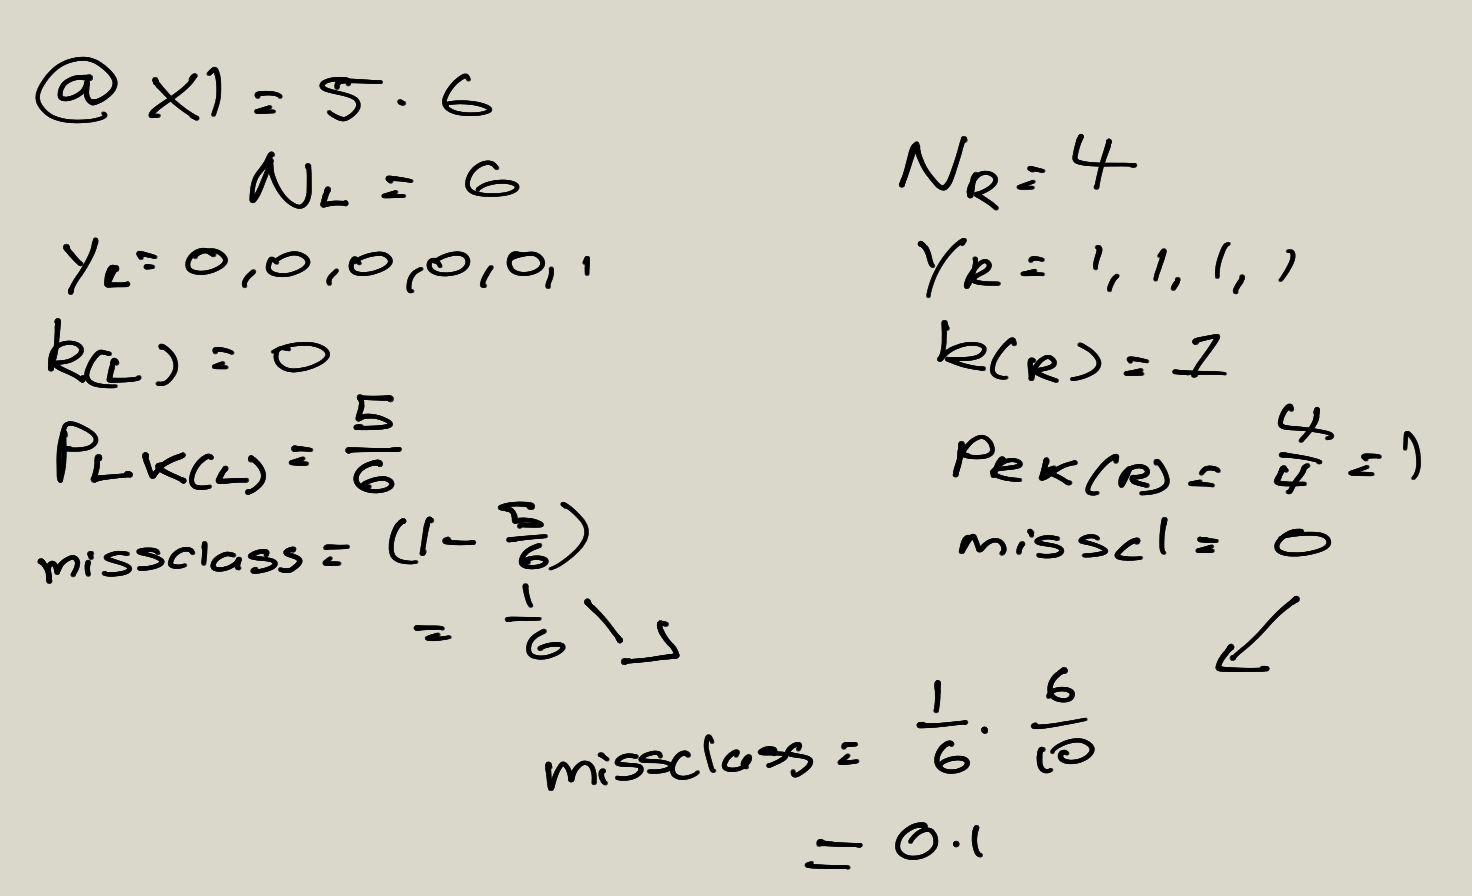 @ X1 = 5.6
N_L = 6
y_L = 0,0,0,0,0,1
k(L) = 0
P_L K(L) = 5/6
missclass = (1 - 5/6)
= 1/6
N_R = 4
Y_R = 1,1,1,1
k(R) = 1
P_R K(R) = 4/4 = 1
misscl = 0
missclass = 1/6 . 6/10
= 0.1